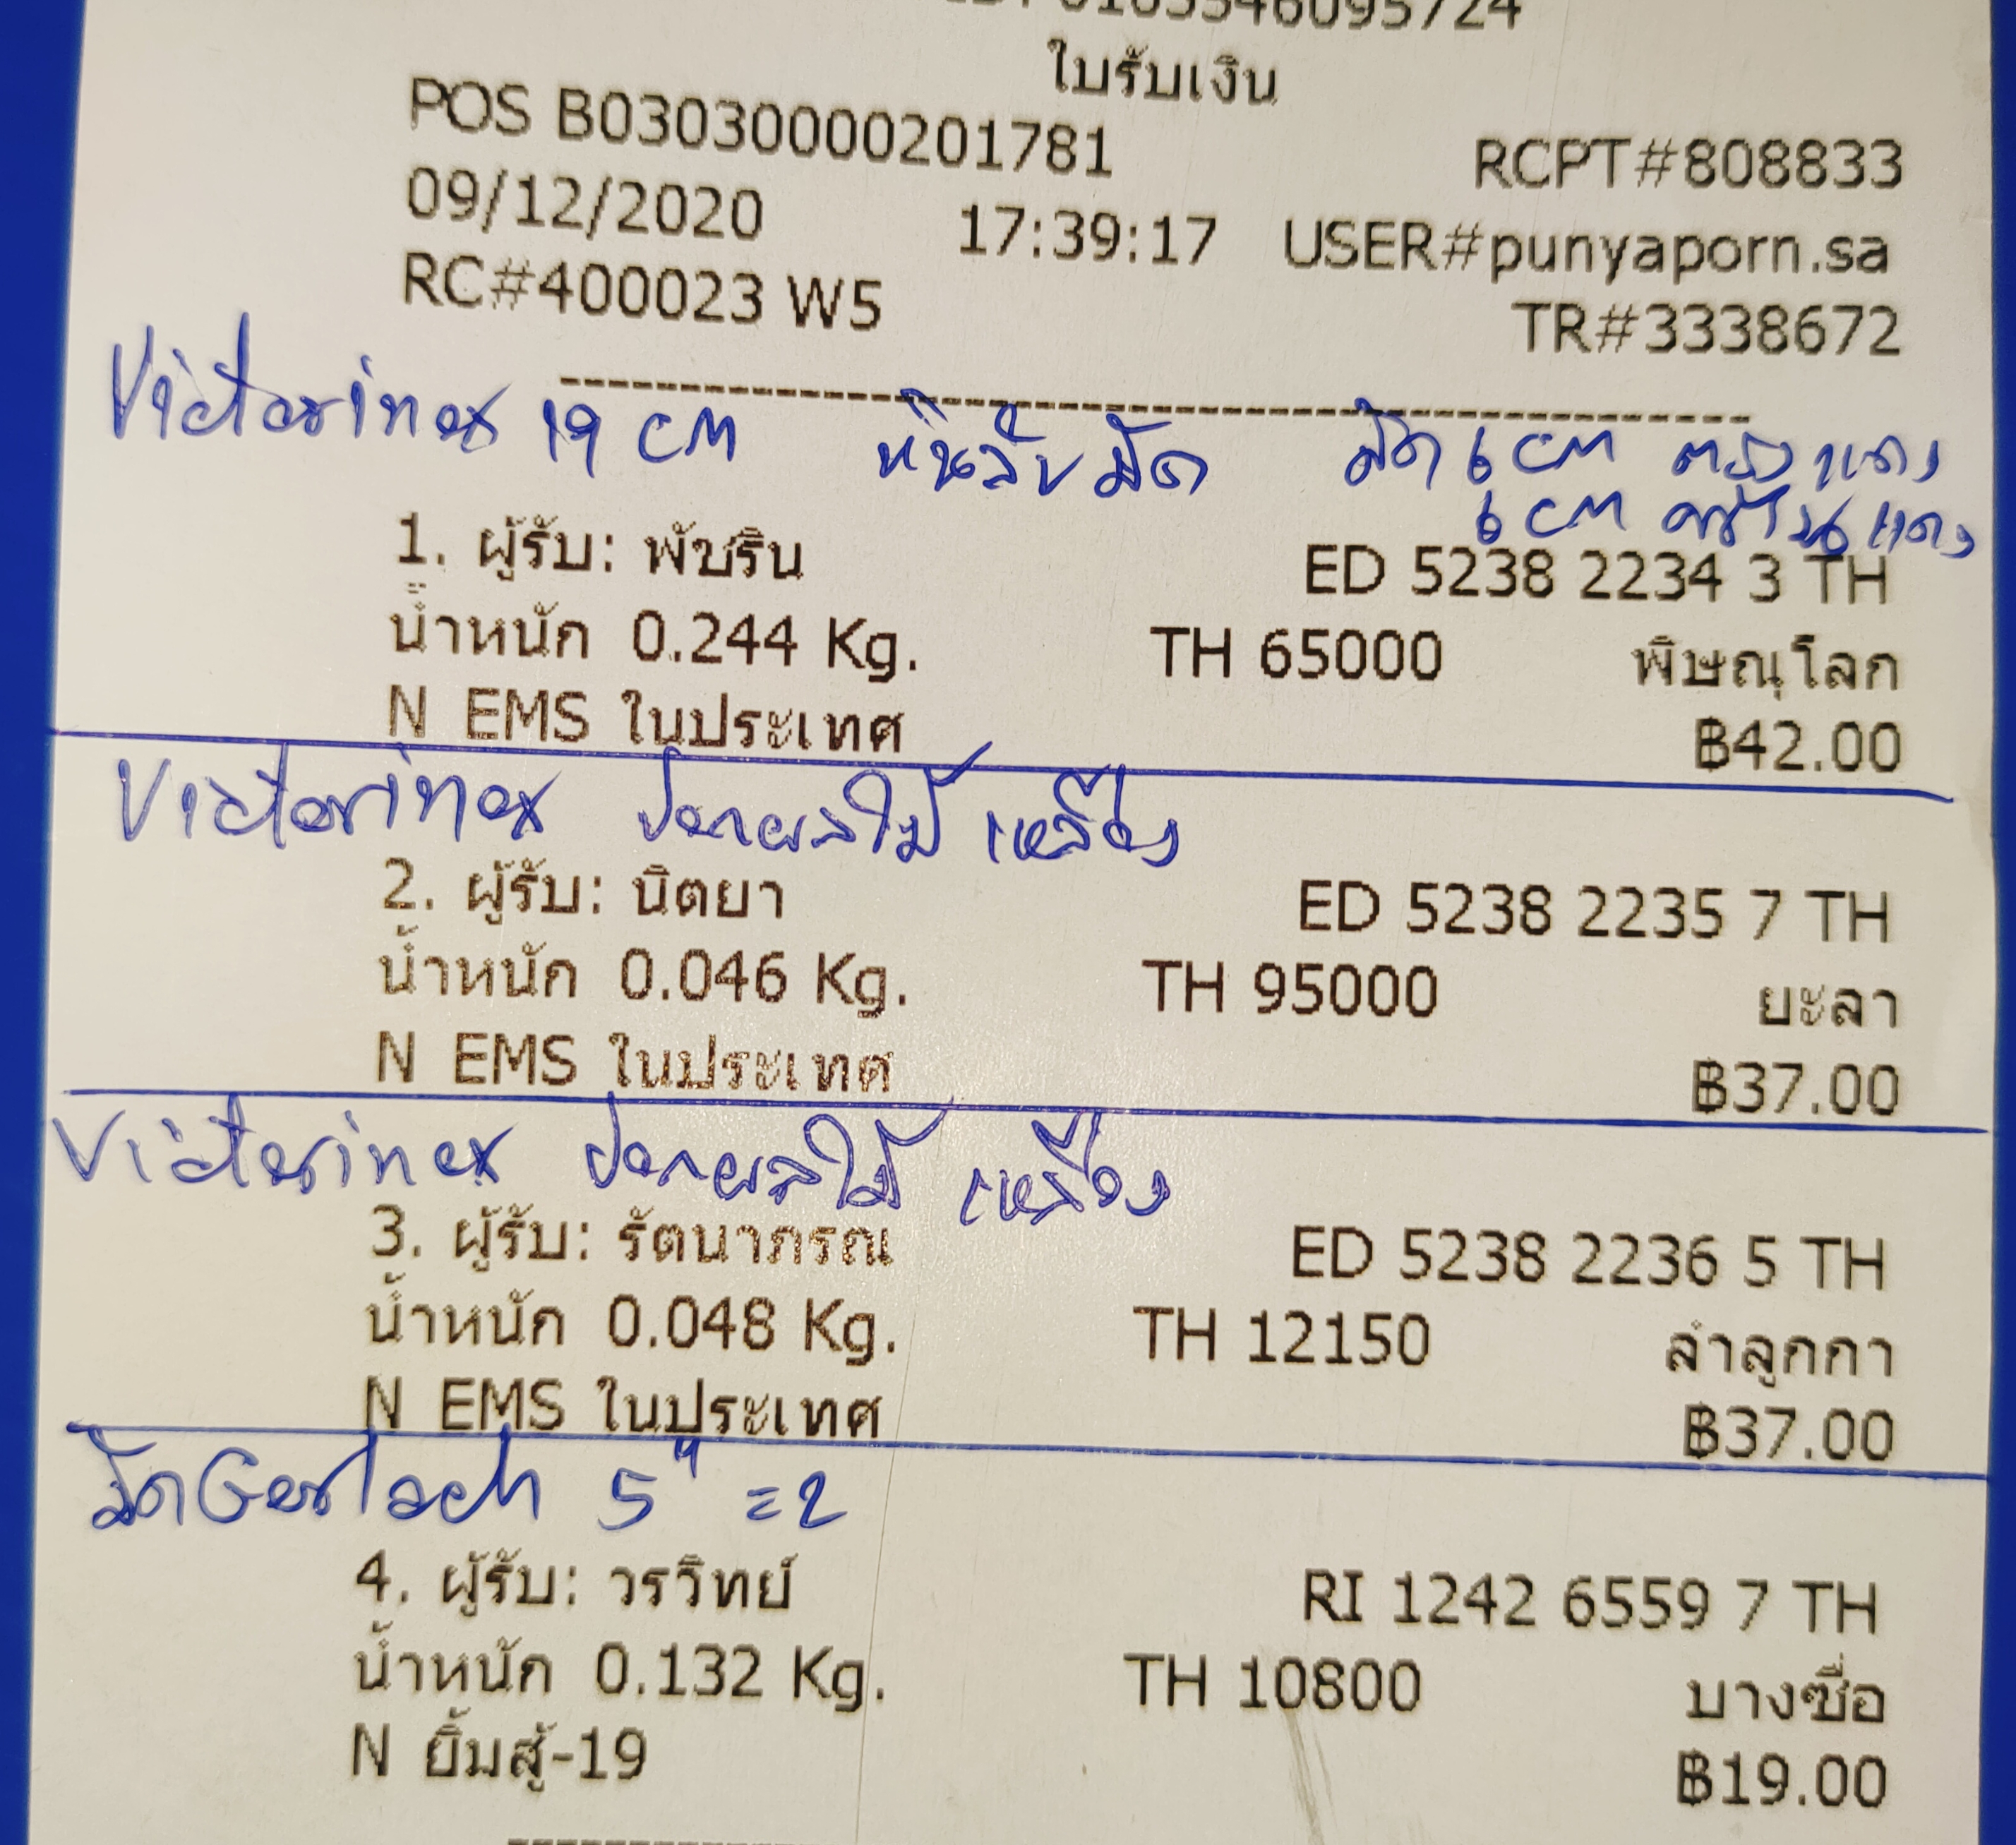 ใบรับเงิน
POS B03030000201781 RCPT#808833
09/12/2020 17:39:17 USER#punyaporn.sa
RC#400023 W5 TR#3338672
Victorinox 19 CM หินลับมีด มีด 6 CM ตรง แดง
6 CM หยัก แดง
1. ผู้รับ: พัชริน ED 5238 2234 3 TH
น้ำหนัก 0.244 Kg. TH 65000 พิษณุโลก
N EMS ในประเทศ ฿42.00
Victorinox ปอกผลไม้ เหลือง
2. ผู้รับ: นิตยา ED 5238 2235 7 TH
น้ำหนัก 0.046 Kg. TH 95000 ยะลา
N EMS ในประเทศ ฿37.00
Victorinox ปอกผลไม้ เหลือง
3. ผู้รับ: รัตนาภรณ ED 5238 2236 5 TH
น้ำหนัก 0.048 Kg. TH 12150 ลำลูกกา
N EMS ในประเทศ ฿37.00
มีด Gerlach 5" =2
4. ผู้รับ: วรวิทย์ RI 1242 6559 7 TH
น้ำหนัก 0.132 Kg. TH 10800 บางซื่อ
N ยิ้มสู้-19 ฿19.00